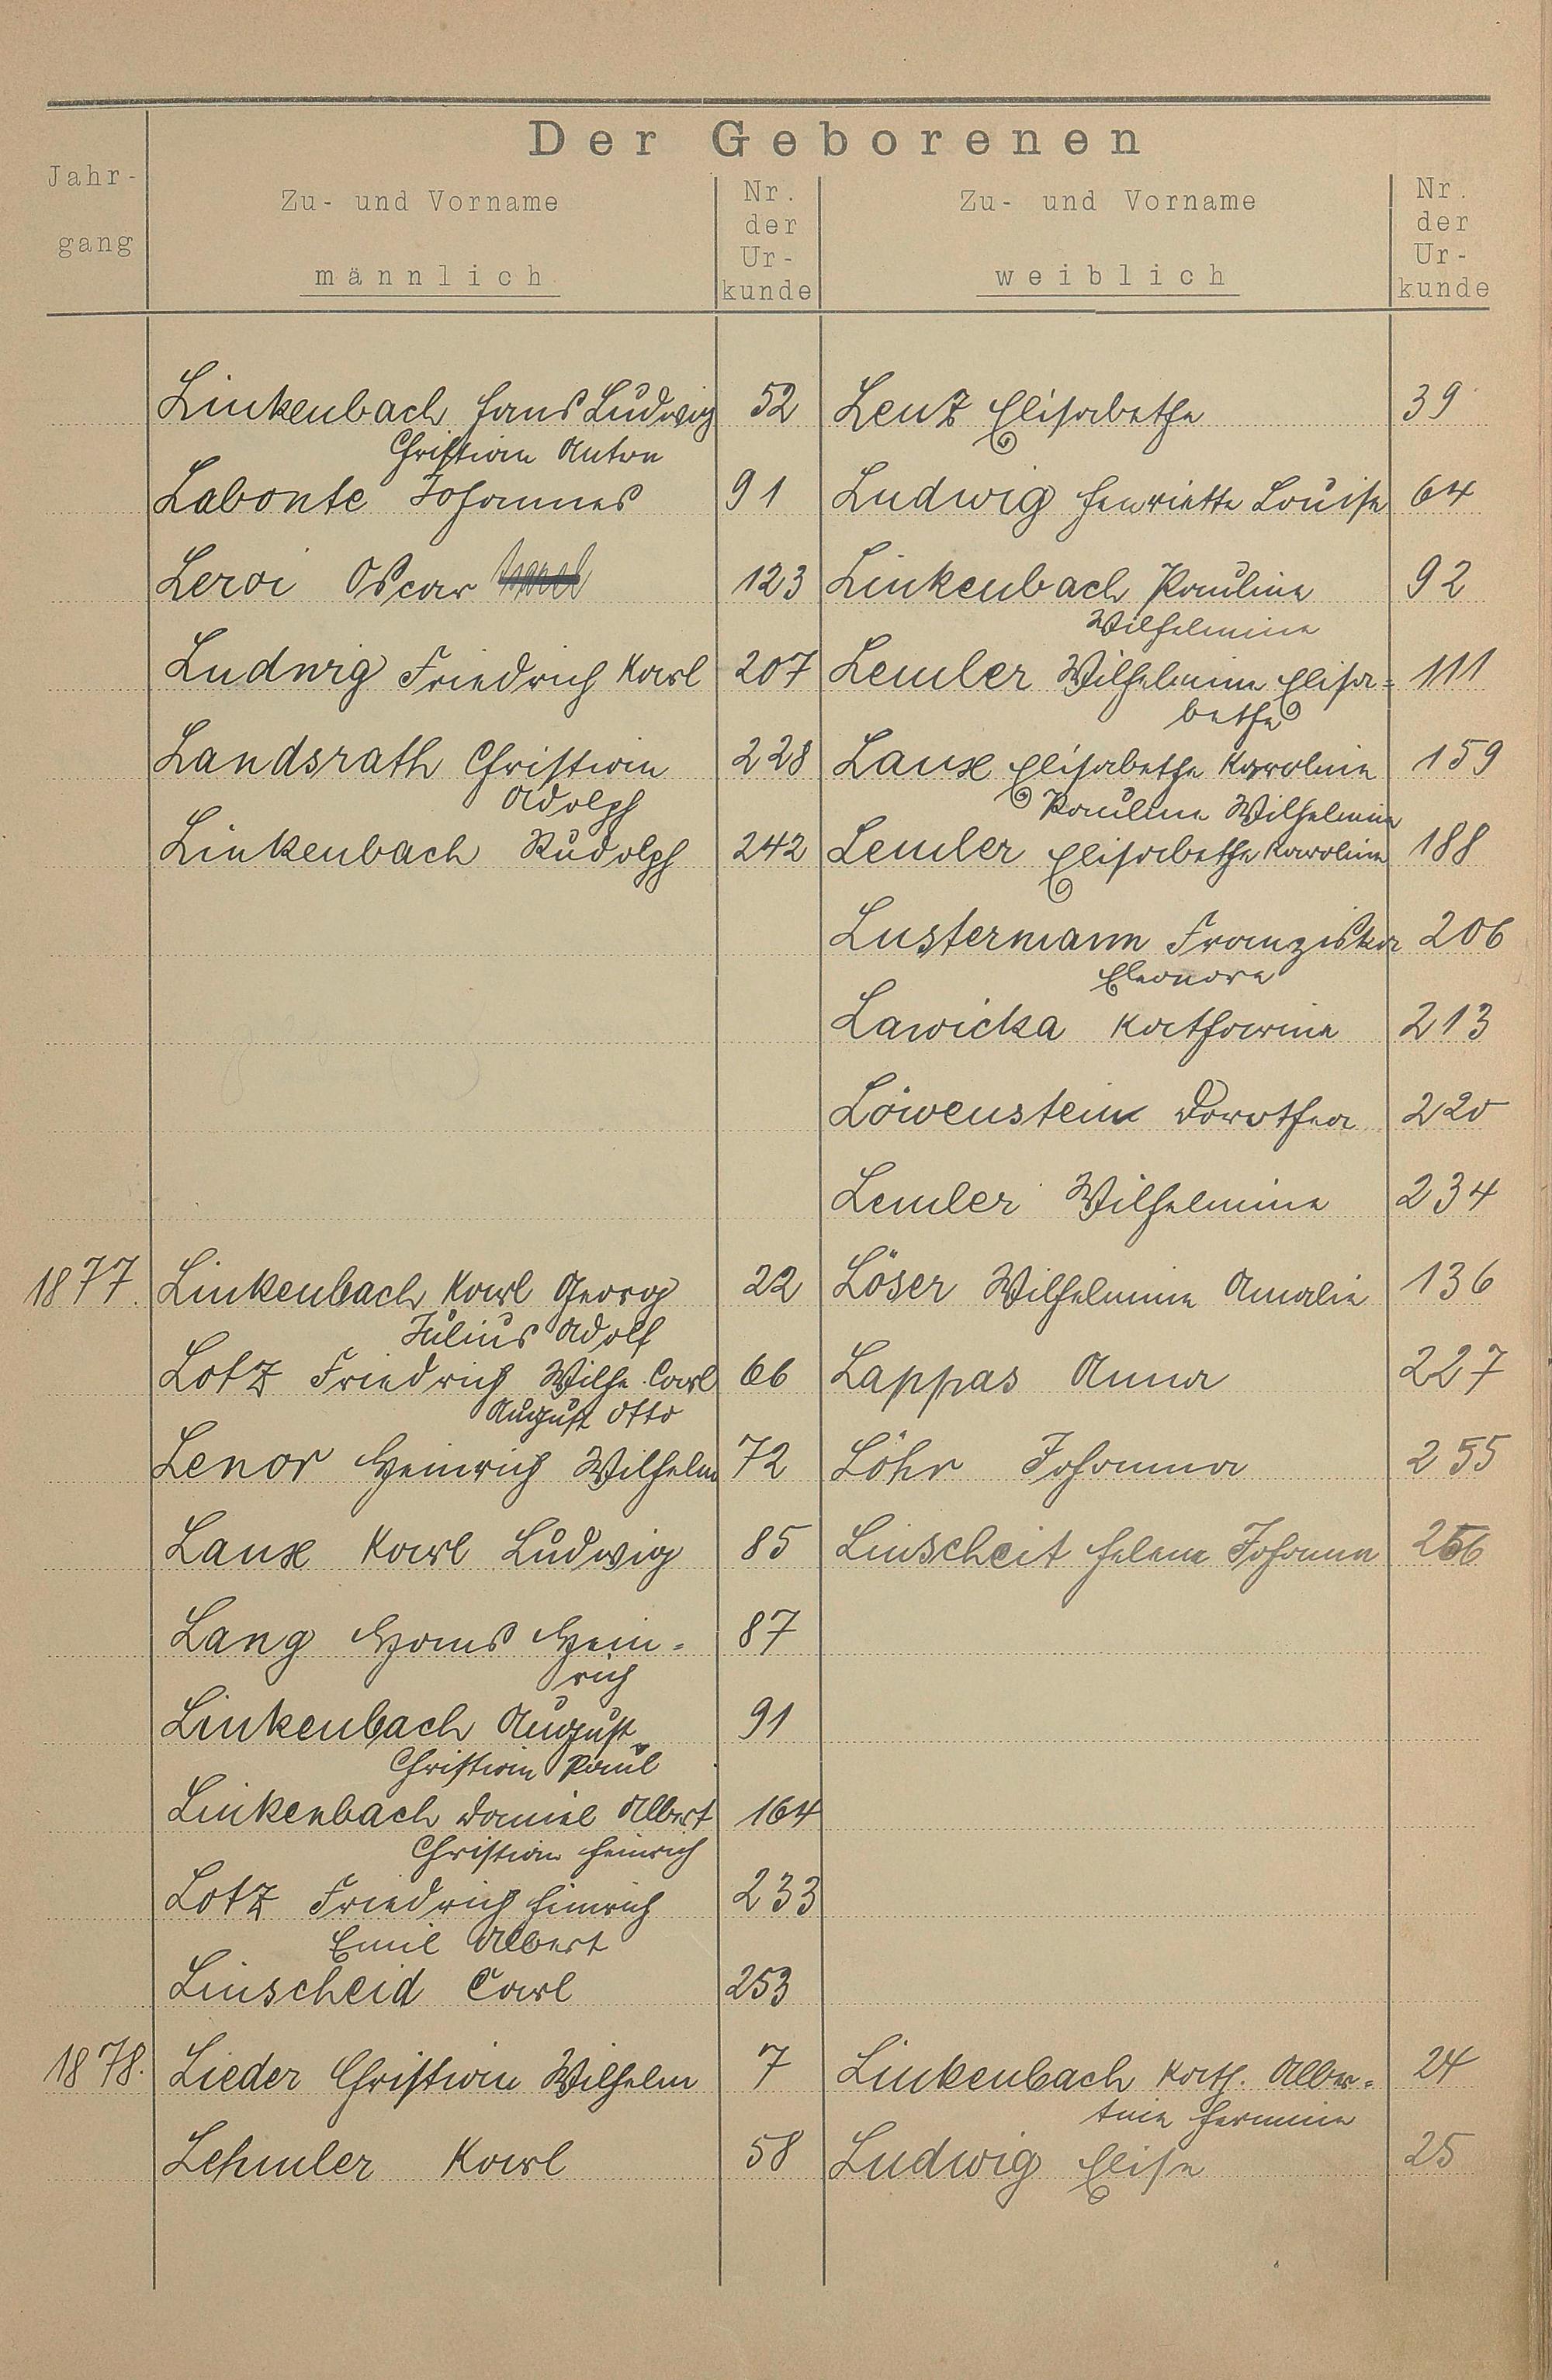 Der Geborenen
Jahr-
gang
Zu- und Vorname
männlich
Nr.
der
Ur-
kunde
Zu- und Vorname
weiblich
Nr.
der
Ur-
kunde
Linkenbach Hans Ludwig 52 Lenz Elisabethe 39
Christian Anton
Labonte Johannes 91 Ludwig Henriette Louise 64
Leroi Oscar 123 Linkenbach Pauline 92
Wilhelmine
Ludwig Friedrich Karl 207 Lemler Wilhelmine Elisa= 111
bethe
Landsrath Christian 228 Laux Elisabethe Karoline 159
Adolph Pauline Wilhelmine
Linkenbach Rudolph 242 Lemler Elisabethe Karoline 188
Lustermann Franziska 206
Eleonore
Lawicka Katharina 213
Löwenstein Dorothea 220
Lemler Wilhelmine 234
1877. Linkenbach Karl Georg 22 Löser Wilhelmine Amalie 136
Julius Adolf
Lotz Friedrich Wilh. Carl 66 Lappas Anna 227
August Otto
Lenor Heinrich Wilhelm 72 Löhr Johanna 255
Laux Karl Ludwig 85 Linscheit Helene Johanna 256
Lang Hans Hein= 87
rich
Linkenbach August 91
Christian Paul
Linkenbach Daniel Albert 164
Christian Heinrich
Lotz Friedrich Heinrich 233
Emil Albert
Linscheid Carl 253
1878. Lieder Christian Wilhelm 7 Linkenbach Kath. Alber= 24
tine Hermine
Lehmler Karl 58 Ludwig Elise 25